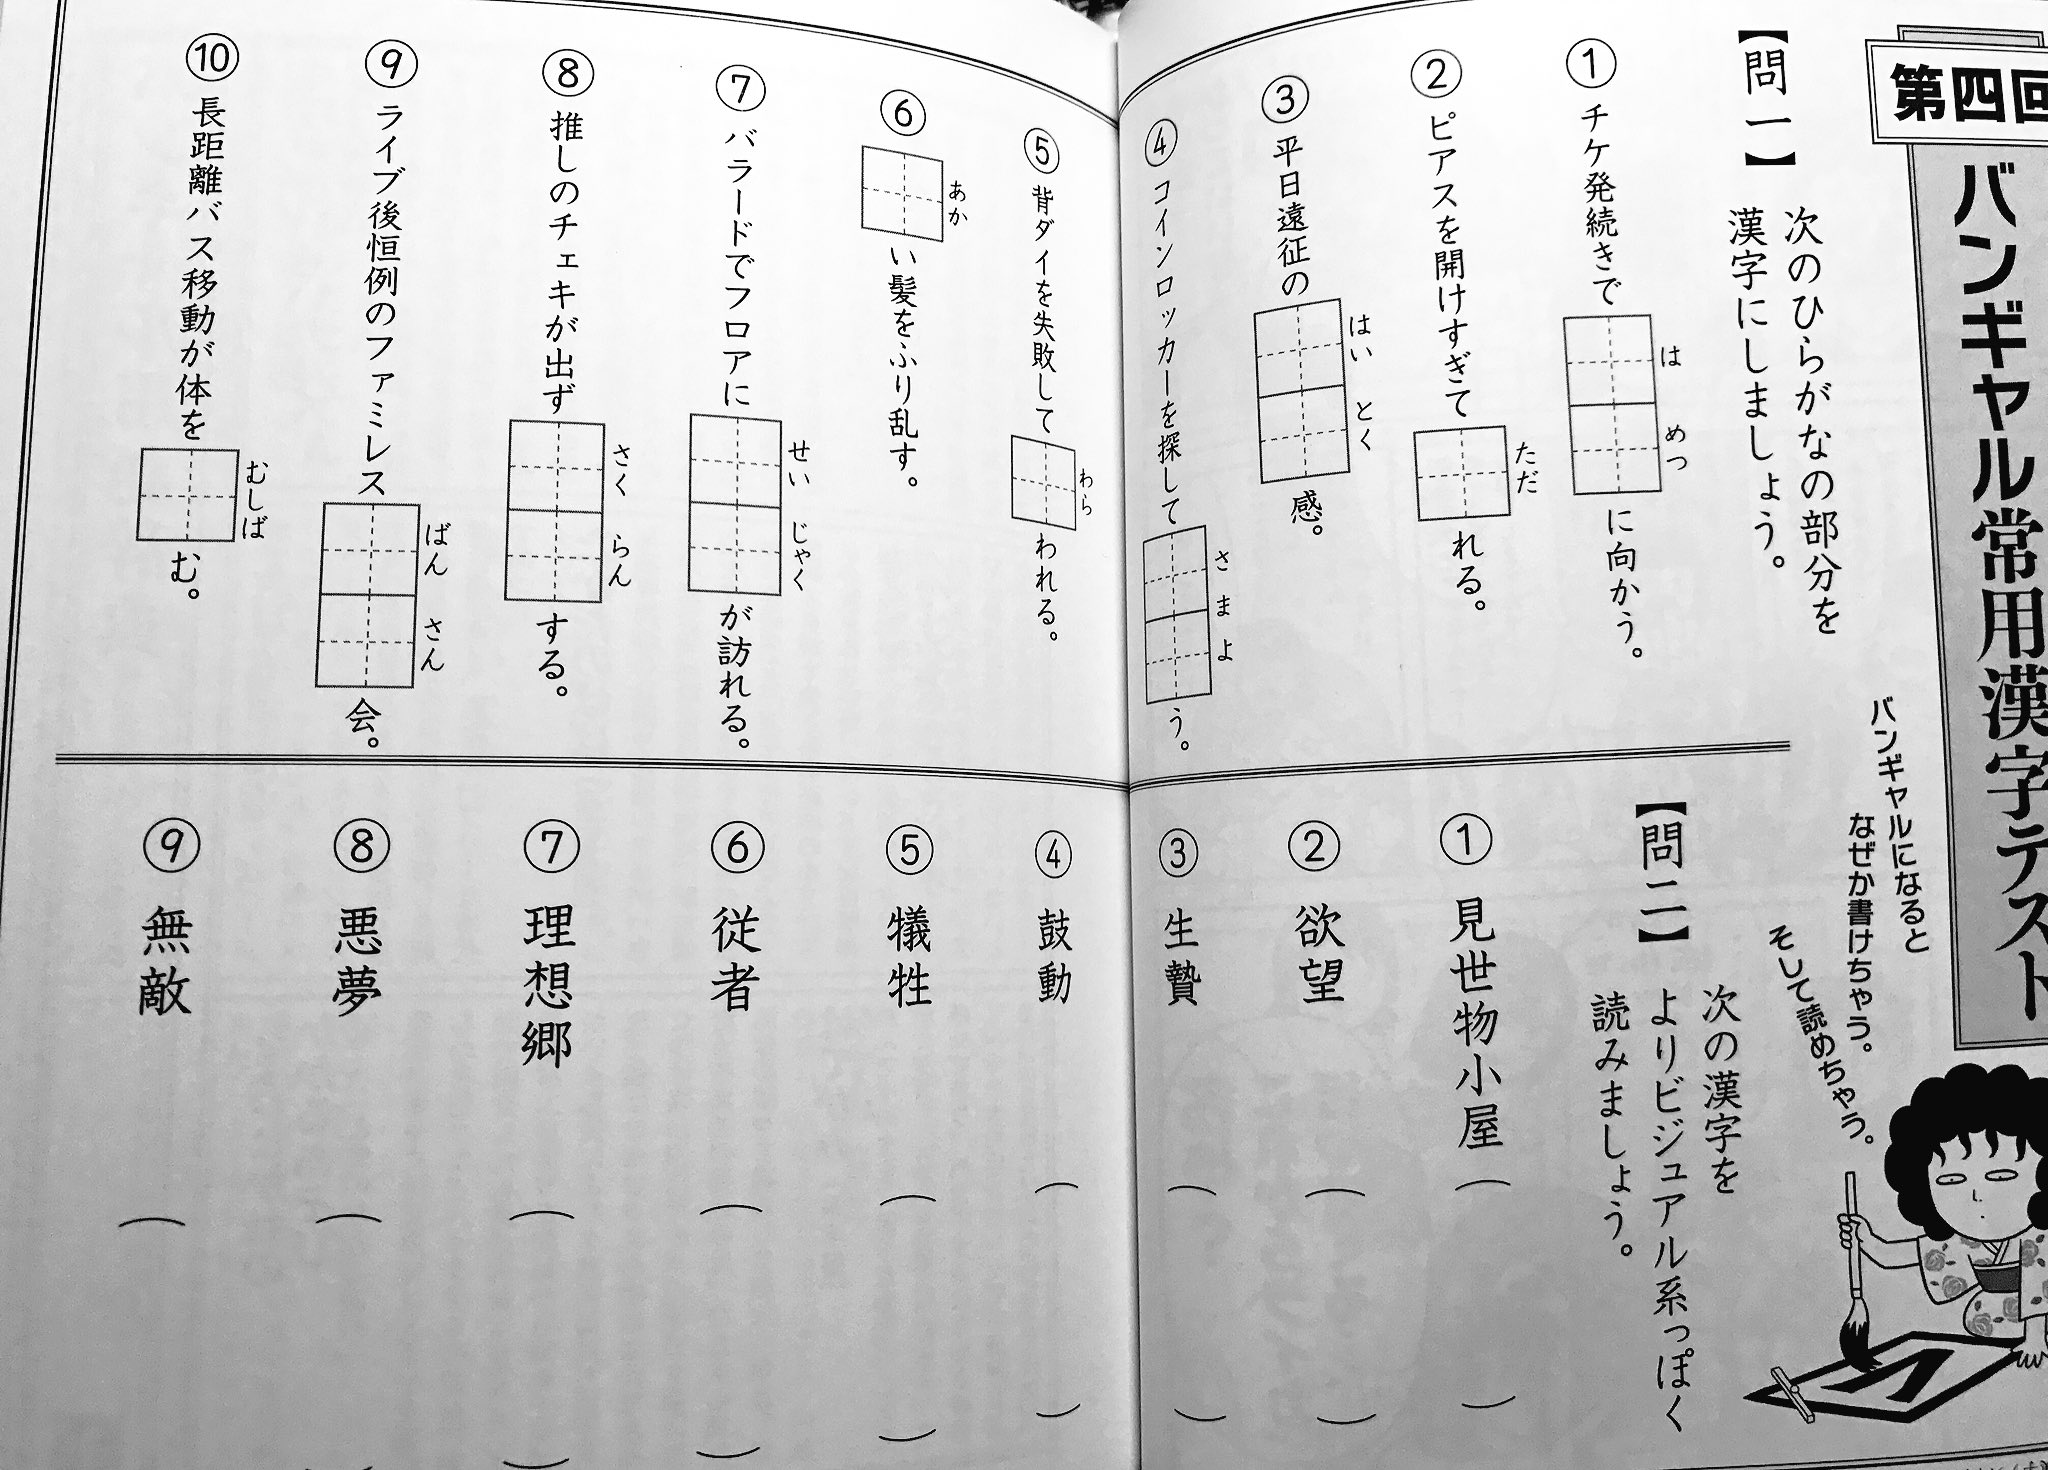 第四回
バンギャル常用漢字テスト
バンギャルになると
なぜか書けちゃう。
そして読めちゃう。
【問一】
次のひらがなの部分を
漢字にしましょう。
① チケ発続きではめつに向かう。
② ピアスを開けすぎてただれる。
③ 平日遠征のはいとく感。
④ コインロッカーを探してさまよう。
⑤ 背ダイを失敗してわらわれる。
⑥ あかい髪をふり乱す。
⑦ バラードでフロアにせいじゃくが訪れる。
⑧ 推しのチェキが出ずさくらんする。
⑨ ライブ後恒例のファミレスばんさん会。
⑩ 長距離バス移動が体をむしばむ。
【問二】
次の漢字を
よりビジュアル系っぽく
読みましょう。
① 見世物小屋（ ）
② 欲望（ ）
③ 生贄（ ）
④ 鼓動（ ）
⑤ 犠牲（ ）
⑥ 従者（ ）
⑦ 理想郷（ ）
⑧ 悪夢（ ）
⑨ 無敵（